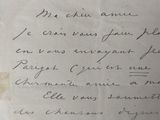 Ma chère amie
Je crois vous faire plai
en vous envoyant Je
Parizot (qui est une
charmante amie à mo
Elle vous soumet
des chansons dignes